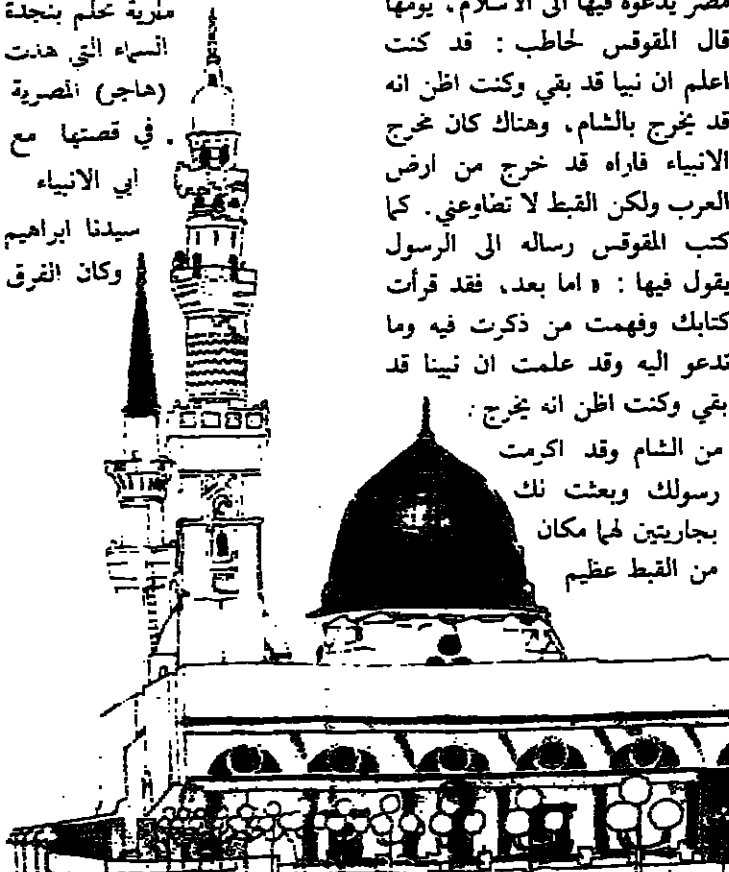 مصر يدعوه فيها الى الاسلام، يومها
قال المقوقس لحاطب : قد كنت
اعلم ان نبيا قد بقي وكنت اظن انه
قد يخرج بالشام، وهناك كان مخرج
الانبياء فاراه قد خرج من ارض
العرب ولكن القبط لا تطاوعني. كما
كتب المقوقس رساله الى الرسول
يقول فيها : « اما بعد، فقد قرأت
كتابك وفهمت من ذكرت فيه وما
تدعو اليه وقد علمت ان نبينا قد
بقي وكنت اظن انه يخرج :
من الشام وقد اكرمت
رسولك وبعثت لك
بجاريتين لهما مكان
من القبط عظيم
مارية تحلم بنجدة
السماء التي هدت
(هاجر) المصرية
في قصتها مع
ابي الانبياء
سيدنا ابراهيم
وكان الفرق